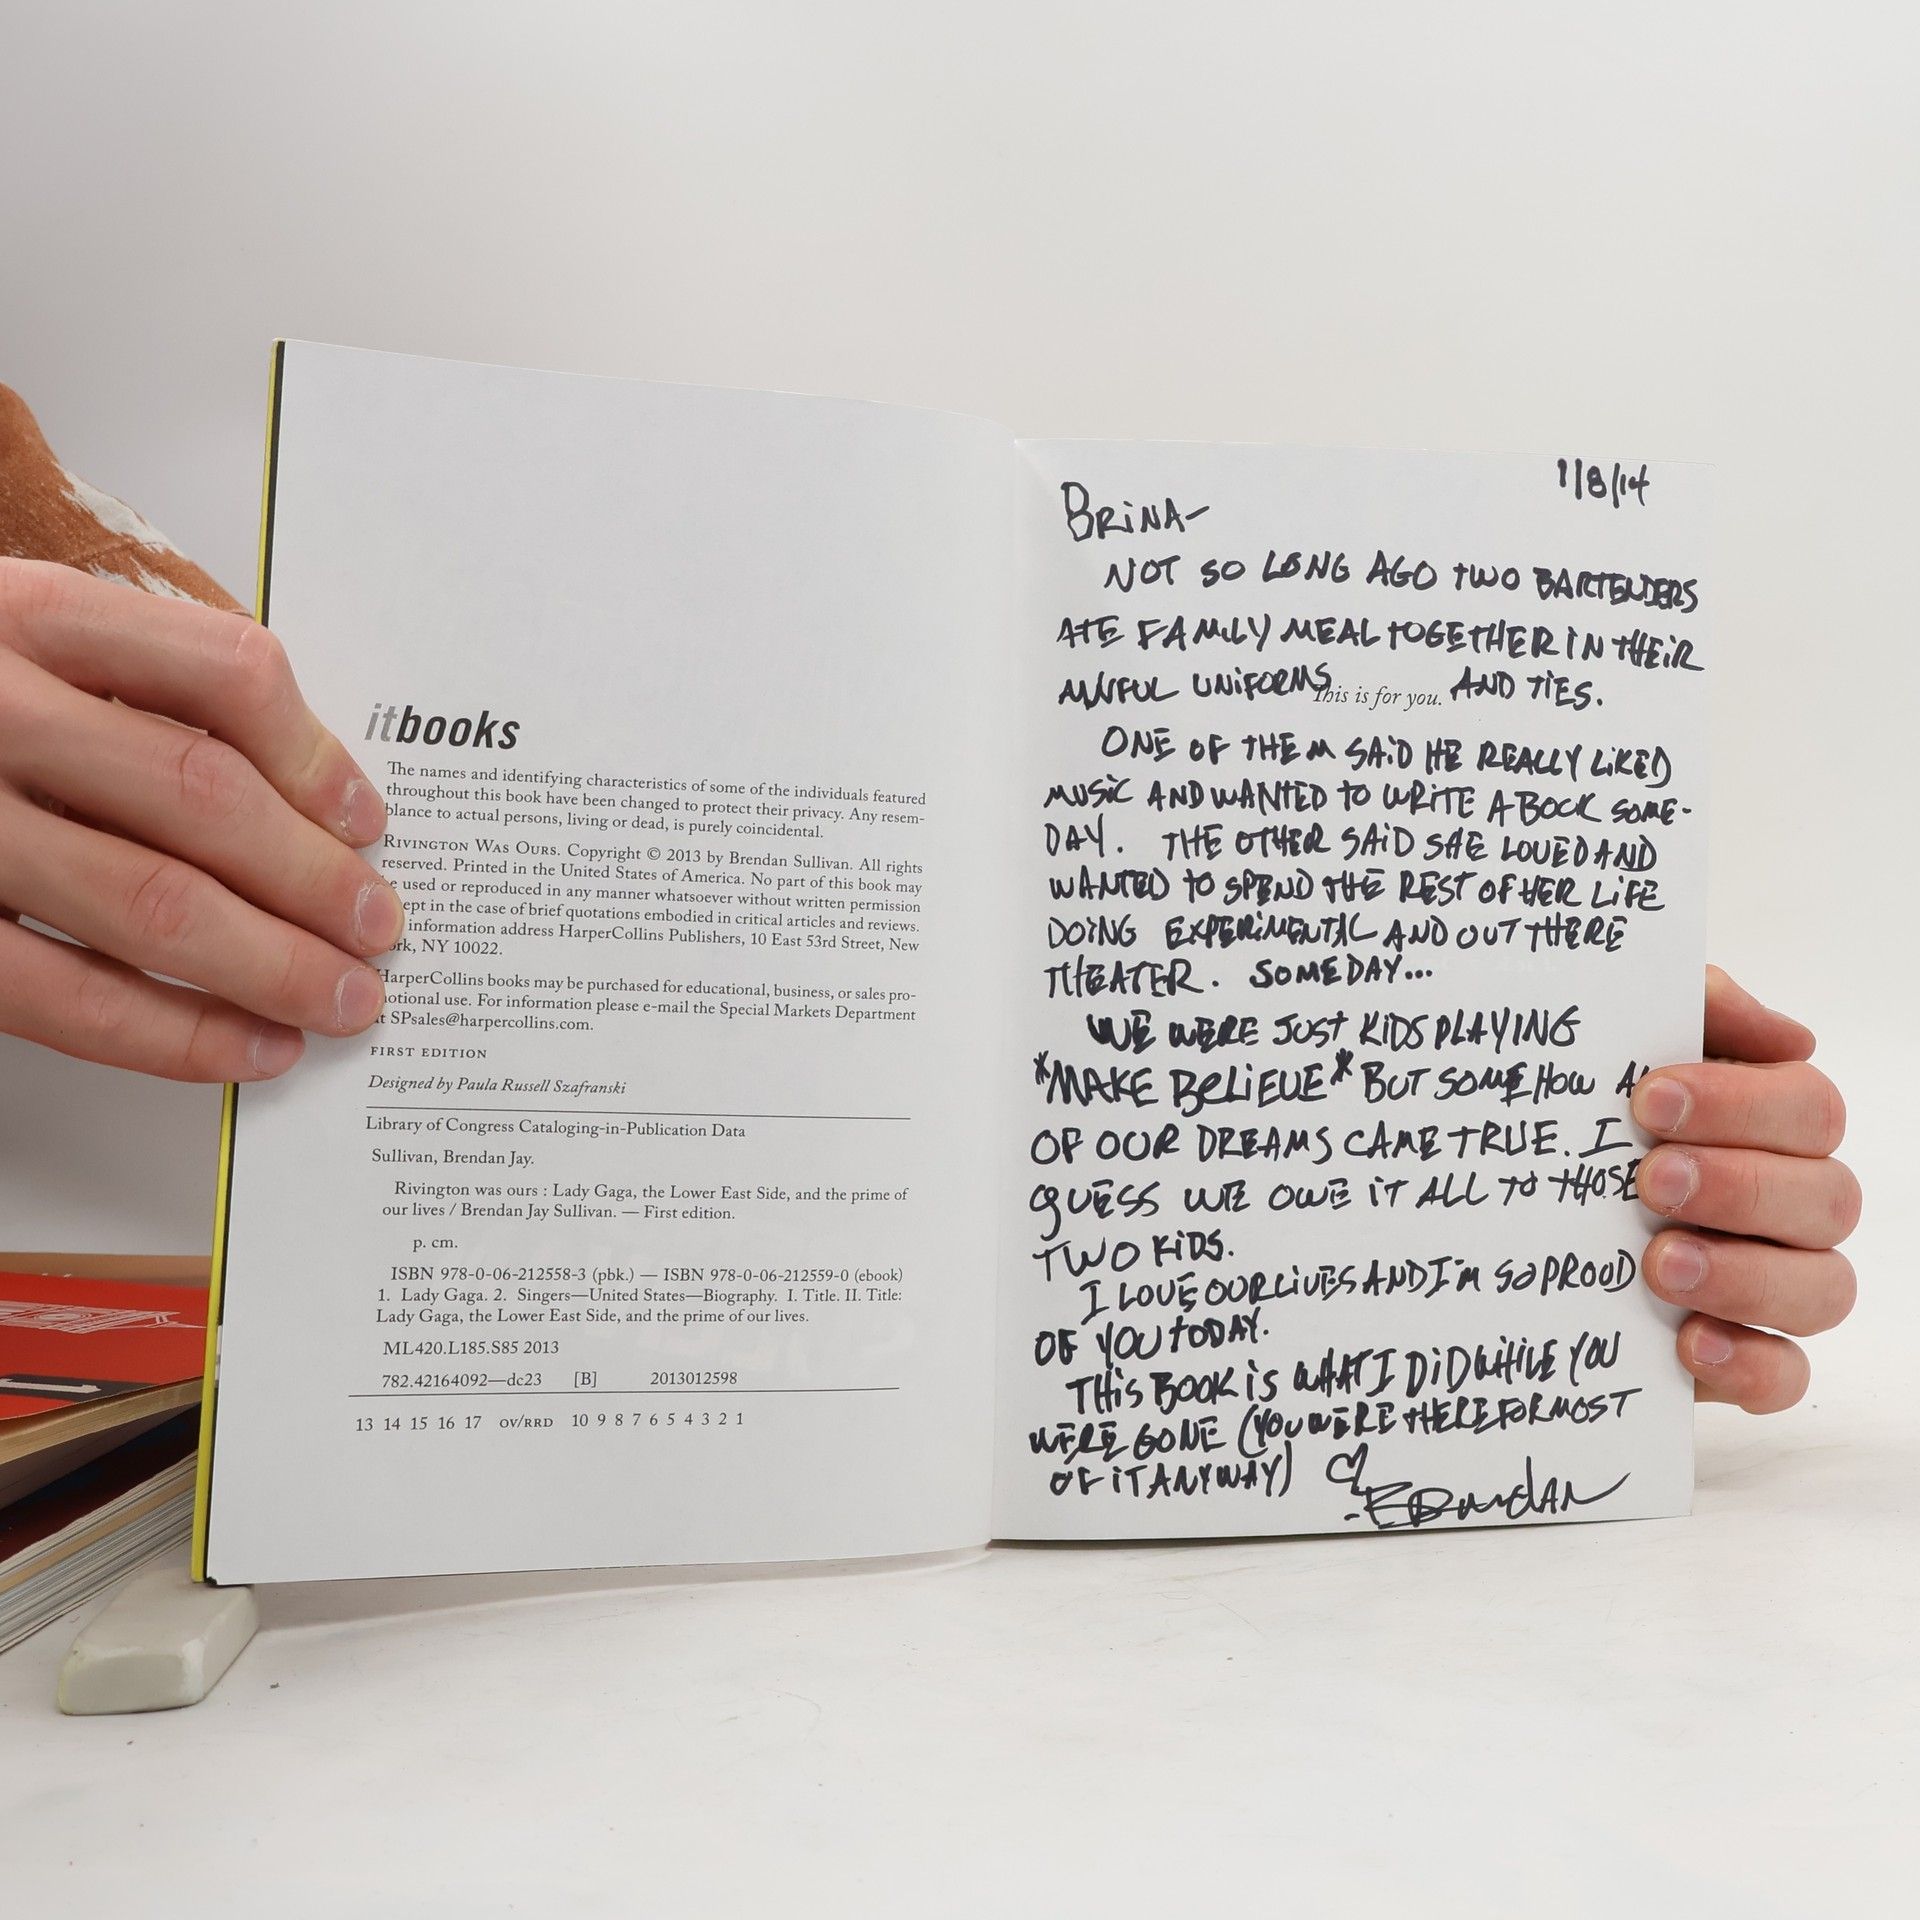 itbooks
The names and identifying characteristics of some of the individuals featured
throughout this book have been changed to protect their privacy. Any resem-
blance to actual persons, living or dead, is purely coincidental.
RIVINGTON WAS OURS. Copyright © 2013 by Brendan Sullivan. All rights
reserved. Printed in the United States of America. No part of this book may
used or reproduced in any manner whatsoever without written permission
in the case of brief quotations embodied in critical articles and reviews.
information address HarperCollins Publishers, 10 East 53rd Street, New
NY 10022.
HarperCollins books may be purchased for educational, business, or sales pro-
motional use. For information please e-mail the Special Markets Department
at SPsales@harpercollins.com.
FIRST EDITION
Designed by Paula Russell Szafranski
Library of Congress Cataloging-in-Publication Data
Sullivan, Brendan Jay.
Rivington was ours : Lady Gaga, the Lower East Side, and the prime of
our lives / Brendan Jay Sullivan. — First edition.
p. cm.
ISBN 978-0-06-212558-3 (pbk.) — ISBN 978-0-06-212559-0 (ebook)
1. Lady Gaga. 2. Singers—United States—Biography. I. Title. II. Title:
Lady Gaga, the Lower East Side, and the prime of our lives.
ML420.L185.S85 2013
782.42164092—dc23 [B] 2013012598
13 14 15 16 17 OV/RRD 10 9 8 7 6 5 4 3 2 1
1/8/14
BRINA—
NOT SO LONG AGO TWO BARTENDERS
ATE FAMILY MEAL TOGETHER IN THEIR
AWFUL UNIFORMS This is for you. AND TIES.
ONE OF THEM SAID HE REALLY LIKED
MUSIC AND WANTED TO WRITE A BOOK SOME-
DAY. THE OTHER SAID SHE LOVED AND
WANTED TO SPEND THE REST OF HER LIFE
DOING EXPERIMENTAL AND OUT THERE
THEATER. SOMEDAY...
WE WERE JUST KIDS PLAYING
*MAKE BELIEVE* BUT SOMEHOW
OF OUR DREAMS CAME TRUE. I
GUESS WE OWE IT ALL TO THOSE
TWO KIDS.
I LOVE OUR LIVES AND I'M SO PROUD
OF YOU TODAY.
THIS BOOK IS WHAT I DID WHILE YOU
WERE GONE (YOU WERE THERE FOR MOST
OF IT ANYWAY) ♡
-BRENDAN